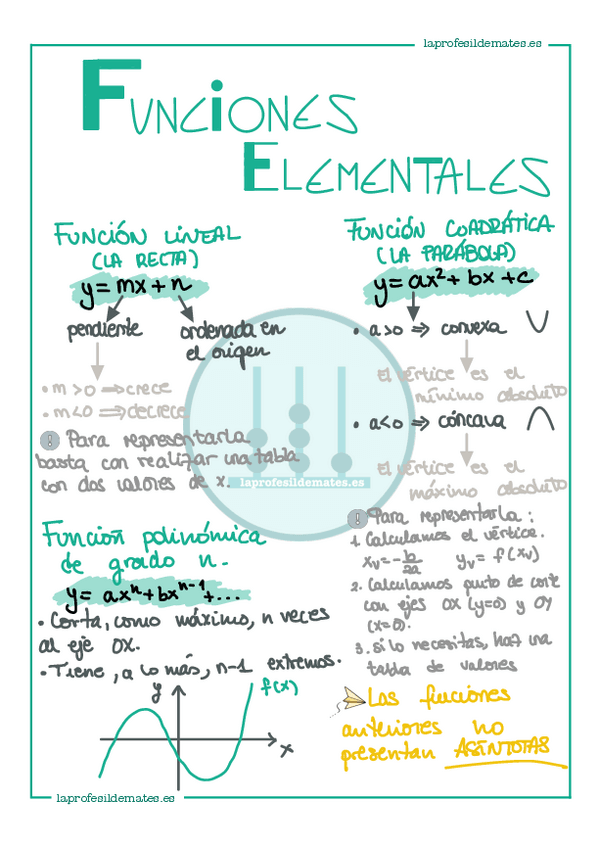 laprofesildemates.es
FUNCIONES
ELEMENTALES
FUNCIÓN LINEAL
(LA RECTA)
y = mx + n
pendiente
ordenada en
el origen
• m > 0 ⇒ crece
• m < 0 ⇒ decrece
! Para representarla
basta con realizar una tabla
con dos valores de x.
laprofesildemates.es
Función polinómica
de grado n.
y = axⁿ + bxⁿ⁻¹ + ...
• Corta, como máximo, n veces
al eje OX.
• Tiene, a lo más, n-1 extremos.
y
f(x)
x
FUNCIÓN CUADRÁTICA
(LA PARÁBOLA)
y = ax² + bx + c
• a>0 ⇒ convexa ∪
El vértice es el
mínimo absoluto
• a<0 ⇒ cóncava ∩
El vértice es el
máximo absoluto
! Para representarla:
1. Calculamos el vértice.
xᵥ = -b/2a yᵥ = f(xᵥ)
2. Calculamos punto de corte
con ejes OX (y=0) y OY
(x=0).
3. si lo necesitas, haz una
tabla de valores
Las funciones
anteriores no
presentan ASÍNTOTAS
laprofesildemates.es